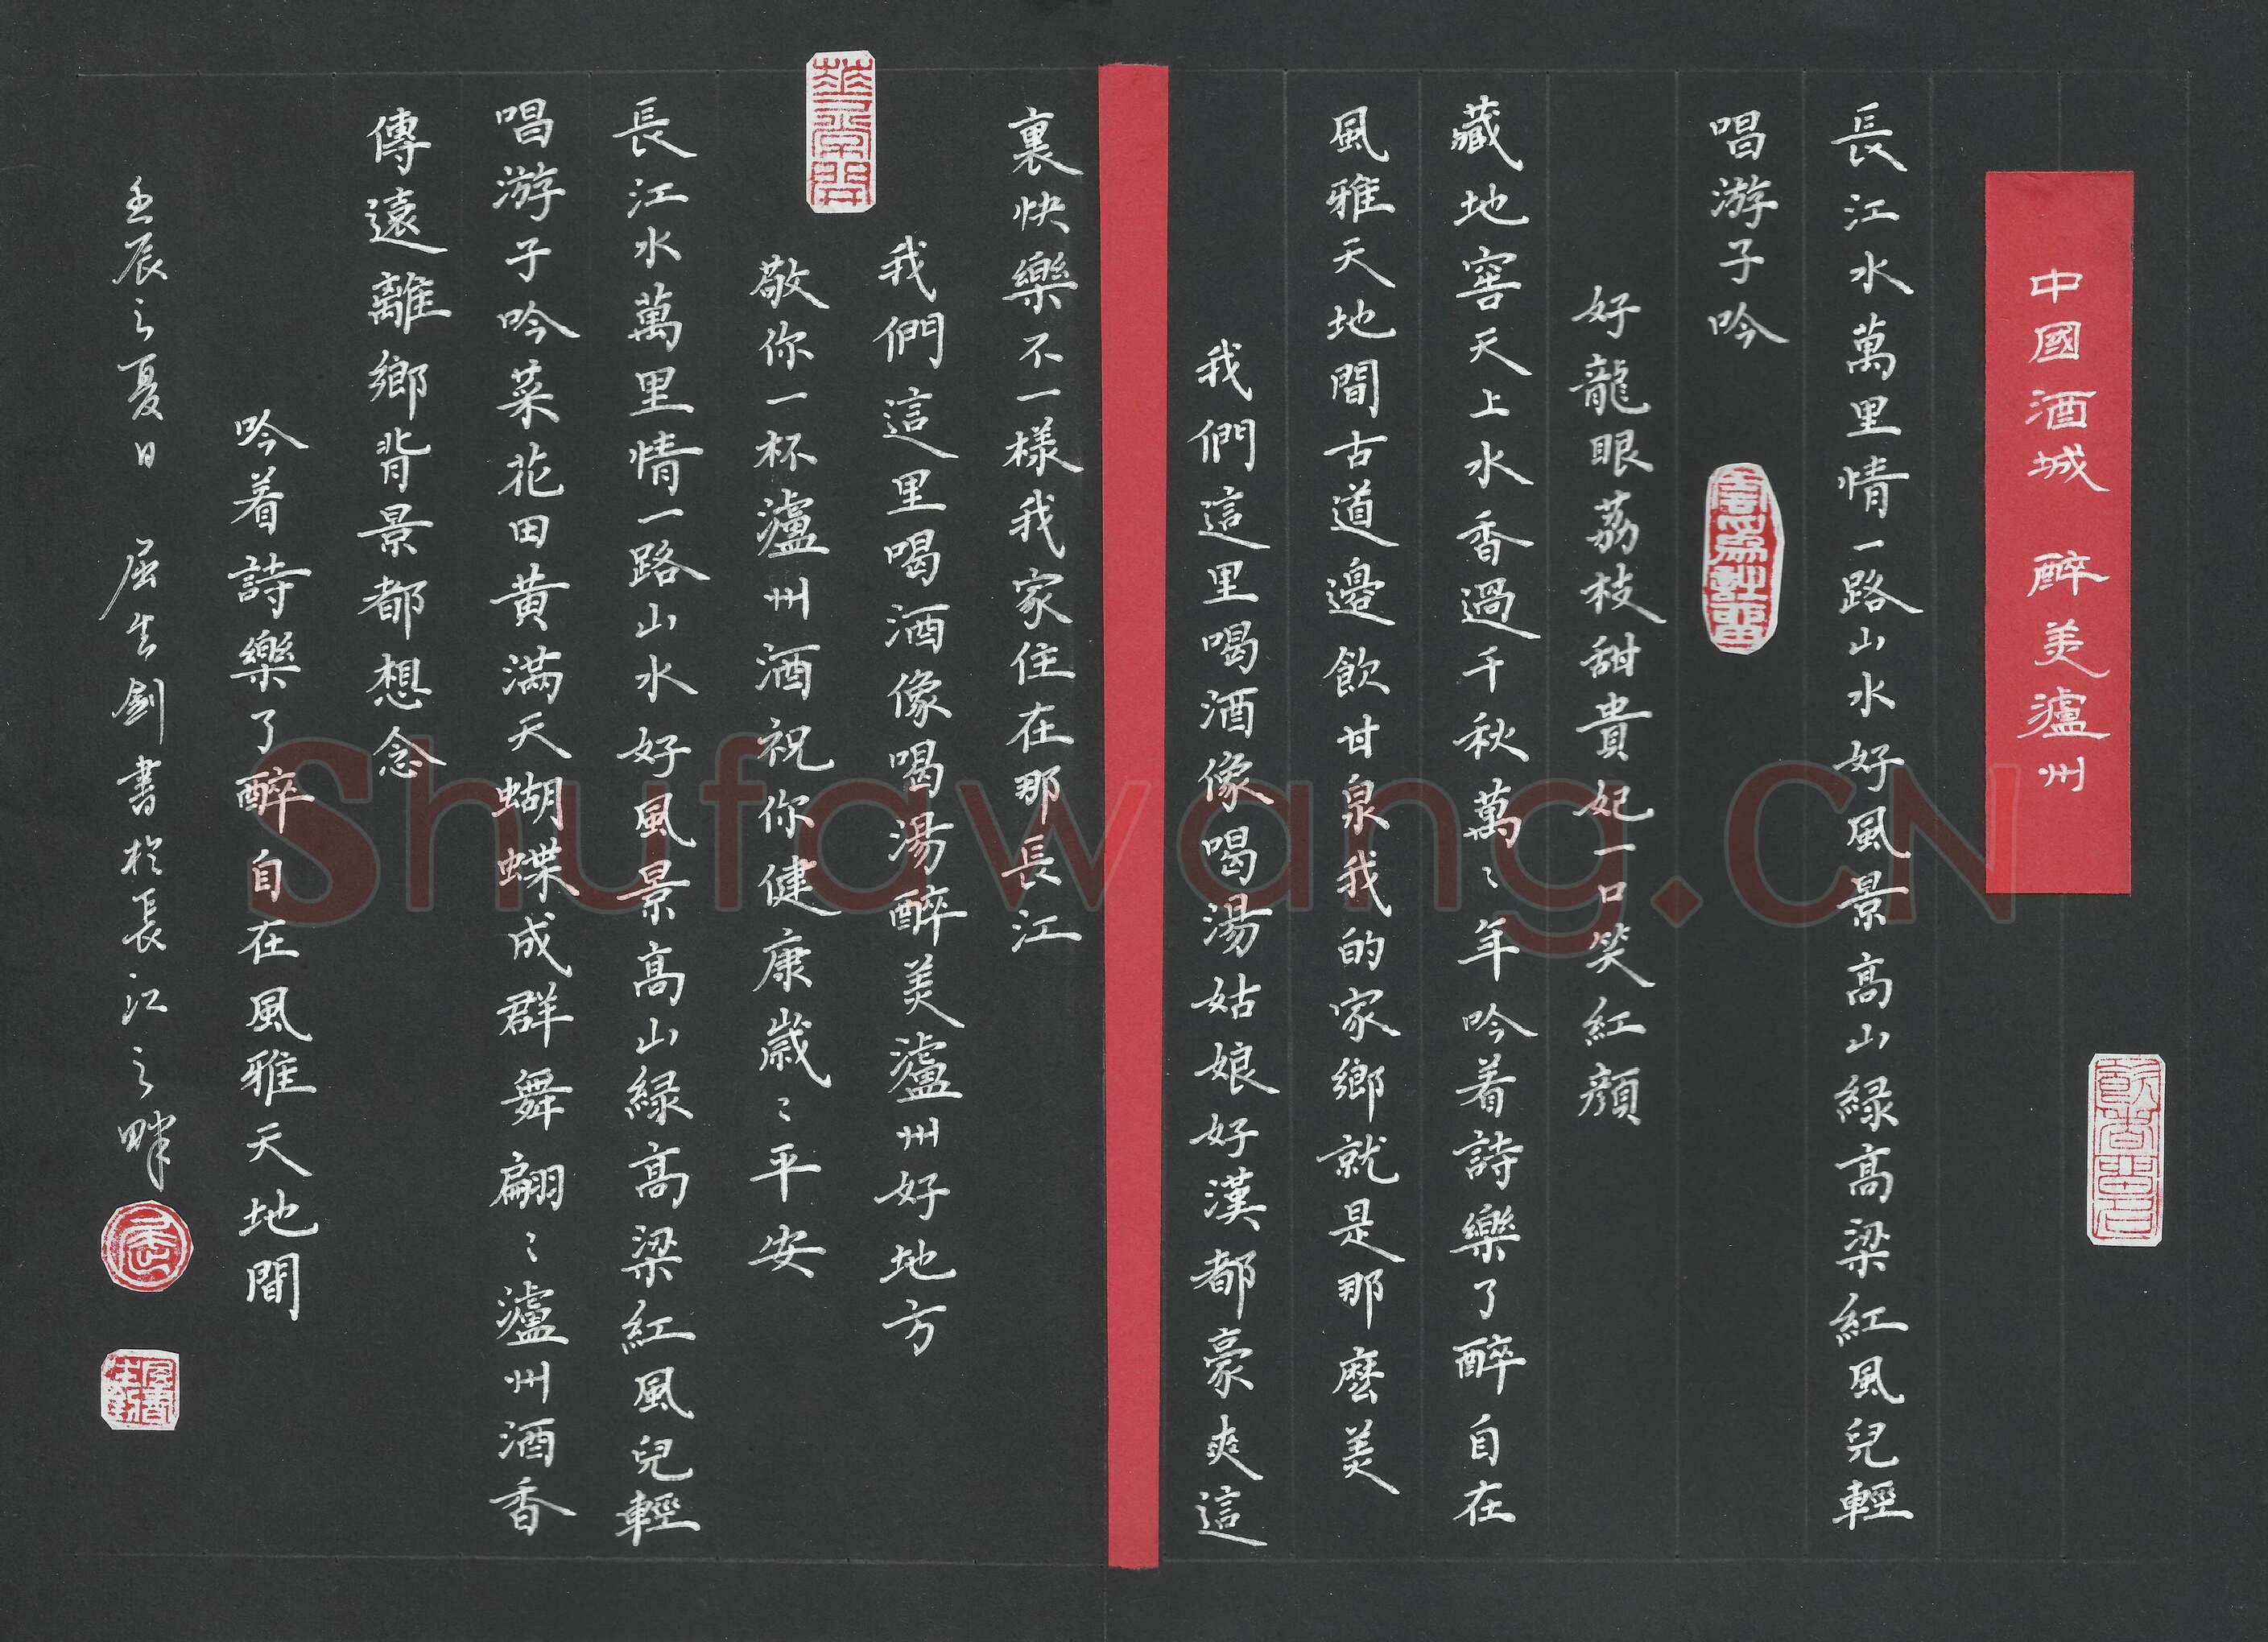 中國酒城 醉美瀘州
長江水萬里情一路山水好風景高山緑高梁紅風兒輕
唱游子吟
好龍眼荔枝甜貴妃一口笑紅顔
藏地窖天上水香過千秋萬〻年吟着詩樂了醉自在
風雅天地間古道邊飲甘泉我的家鄉就是那麽美
我們這里喝酒像喝湯姑娘好漢都豪爽這
裏快樂不一樣我家住在那長江
我們這里喝酒像喝湯醉美瀘州好地方
敬你一杯瀘州酒祝你健康歲〻平安
長江水萬里情一路山水好風景高山緑高梁紅風兒輕
唱游子吟菜花田黄滿天蝴蝶成群舞翩〻瀘州酒香
傳遠離鄉背景都想念
吟着詩樂了醉自在風雅天地間
壬辰之夏日 屈生劍書於長江之畔
Shufawang.CN